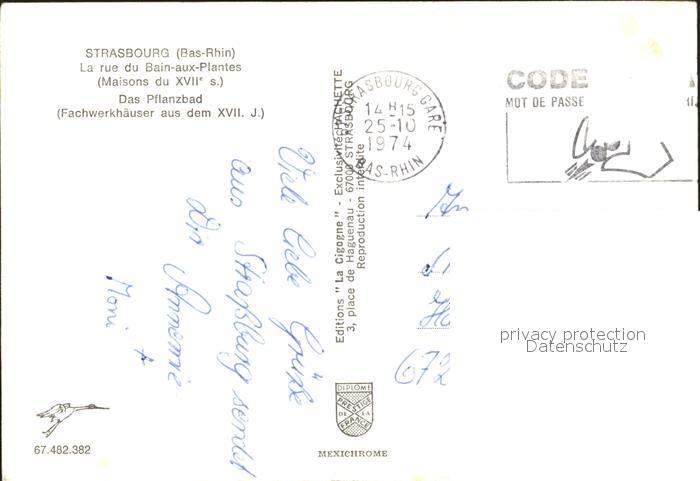 STRASBOURG (Bas-Rhin)
La rue du Bain-aux-Plantes
(Maisons du XVIIe s.)
Das Pflanzbad
(Fachwerkhäuser aus dem XVII. J.)
Viele liebe Grüße
aus Straßburg sendet
Dir Annemie
+
Moni
67.482.382
Editions "La Cigogne" - Exclusivité HACHETTE
3, place de Haguenau - 67000 STRASBOURG
Reproduction interdite
DIPLOME
PRESTIGE
DE LA
FRANCE
MEXICHROME
STRASBOURG GARE
14H15
25-10
1974
BAS-RHIN
CODE
MOT DE PASSE
An
672
privacy protection
Datenschutz